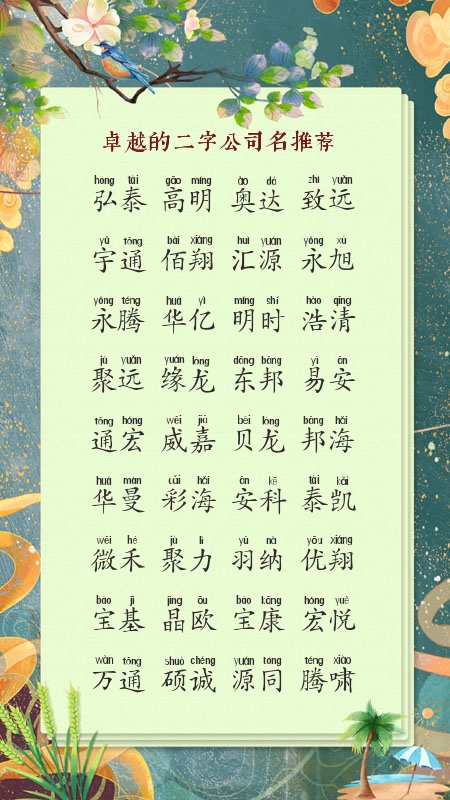 卓越的二字公司名推荐
hóng tài gāo míng ào dá zhì yuǎn
弘泰 高明 奥达 致远
yǔ tōng bǎi xiáng huì yuán yǒng xù
宇通 佰翔 汇源 永旭
yǒng téng huá yì míng shí hào qīng
永腾 华亿 明时 浩清
jù yuǎn yuán lóng dōng bāng yì ān
聚远 缘龙 东邦 易安
tōng hóng wēi jiā bèi lóng bāng hǎi
通宏 威嘉 贝龙 邦海
huá màn cǎi hǎi ān kē tài kǎi
华曼 彩海 安科 泰凯
wēi hé jù lì yǔ nà yōu xiáng
微禾 聚力 羽纳 优翔
bǎo jī jīng ōu bǎo kāng hóng yuè
宝基 晶欧 宝康 宏悦
wàn tōng shuò chéng yuán tóng téng xiào
万通 硕诚 源同 腾啸